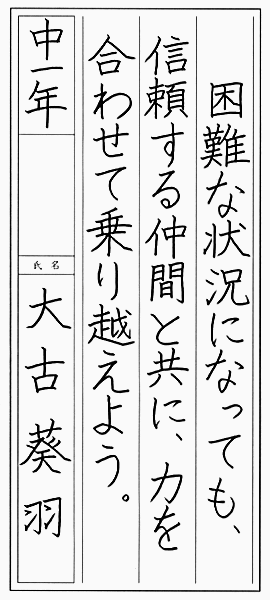 困難な状況になっても、
信頼する仲間と共に、力を
合わせて乗り越えよう。
中一年
氏名
大古葵羽